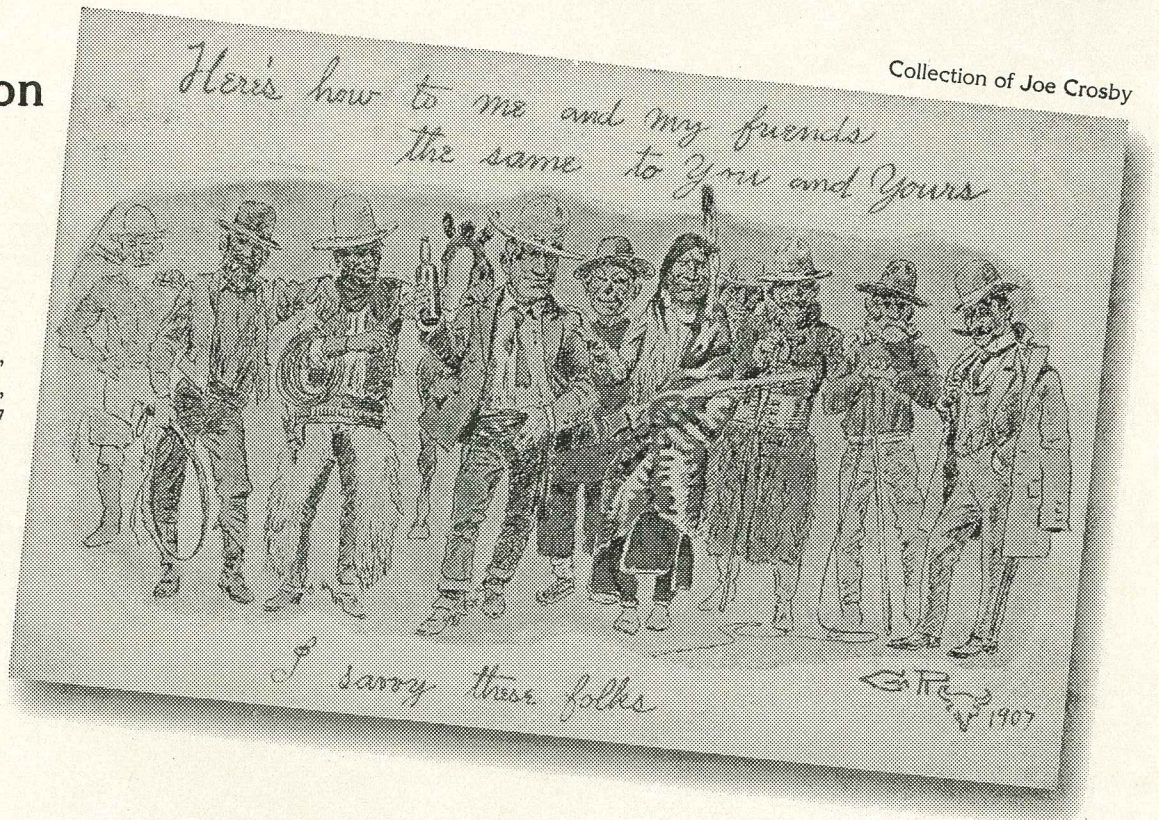 on
Collection of Joe Crosby
Here's how to me and my friends
the same to You and Yours
,
,
7
I savvy these folks
1907